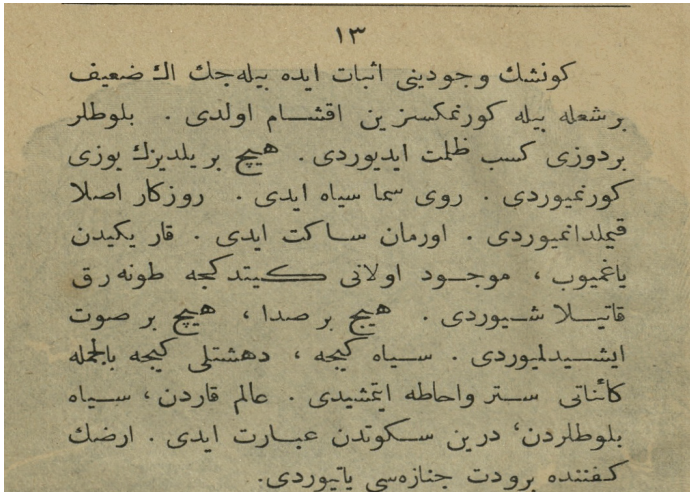 ١٣
كونشك وجودينى اثبات ايده بيله‌جك اك ضعيف
بر شعله بيله كورنمكسزين اقشام اولدى . بلوطلر
بردوزى كسب ظلمت ايديوردى . هيچ بر يلديزك يوزى
كورنميوردى . روى سما سياه ايدى . روزكار اصلا
قيملدانميوردى . اورمان ساكت ايدى . قار يكيدن
ياغميوب ، موجود اولانى كيتدكجه طونه‌رق
قاتيلاشيوردى . هيچ بر صدا ، هيچ بر صوت
ايشيدلميوردى . سياه كيجه ، دهشتلى كيجه بالجمله
كائناتى ستر واحاطه ايتمشيدى . عالم قاردن ، سياه
بلوطلردن، درين سكوتدن عبارت ايدى . ارضك
كفننده برودت جنازه‌سى ياتيوردى.